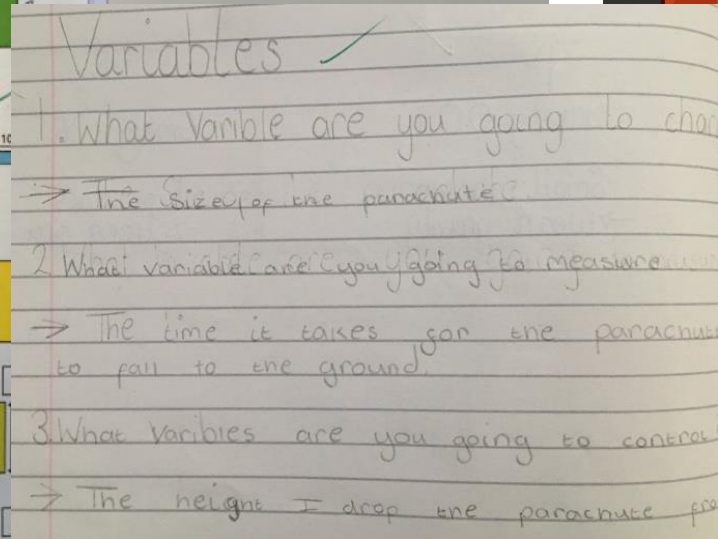 Variables
1. What varible are you going to cha
→ The size of the parachute
2 What variable are you going to measure
→ The time it takes for the parachut
to fall to the ground.
3. What varibles are you going to control
→ The height I drop the parachute fro